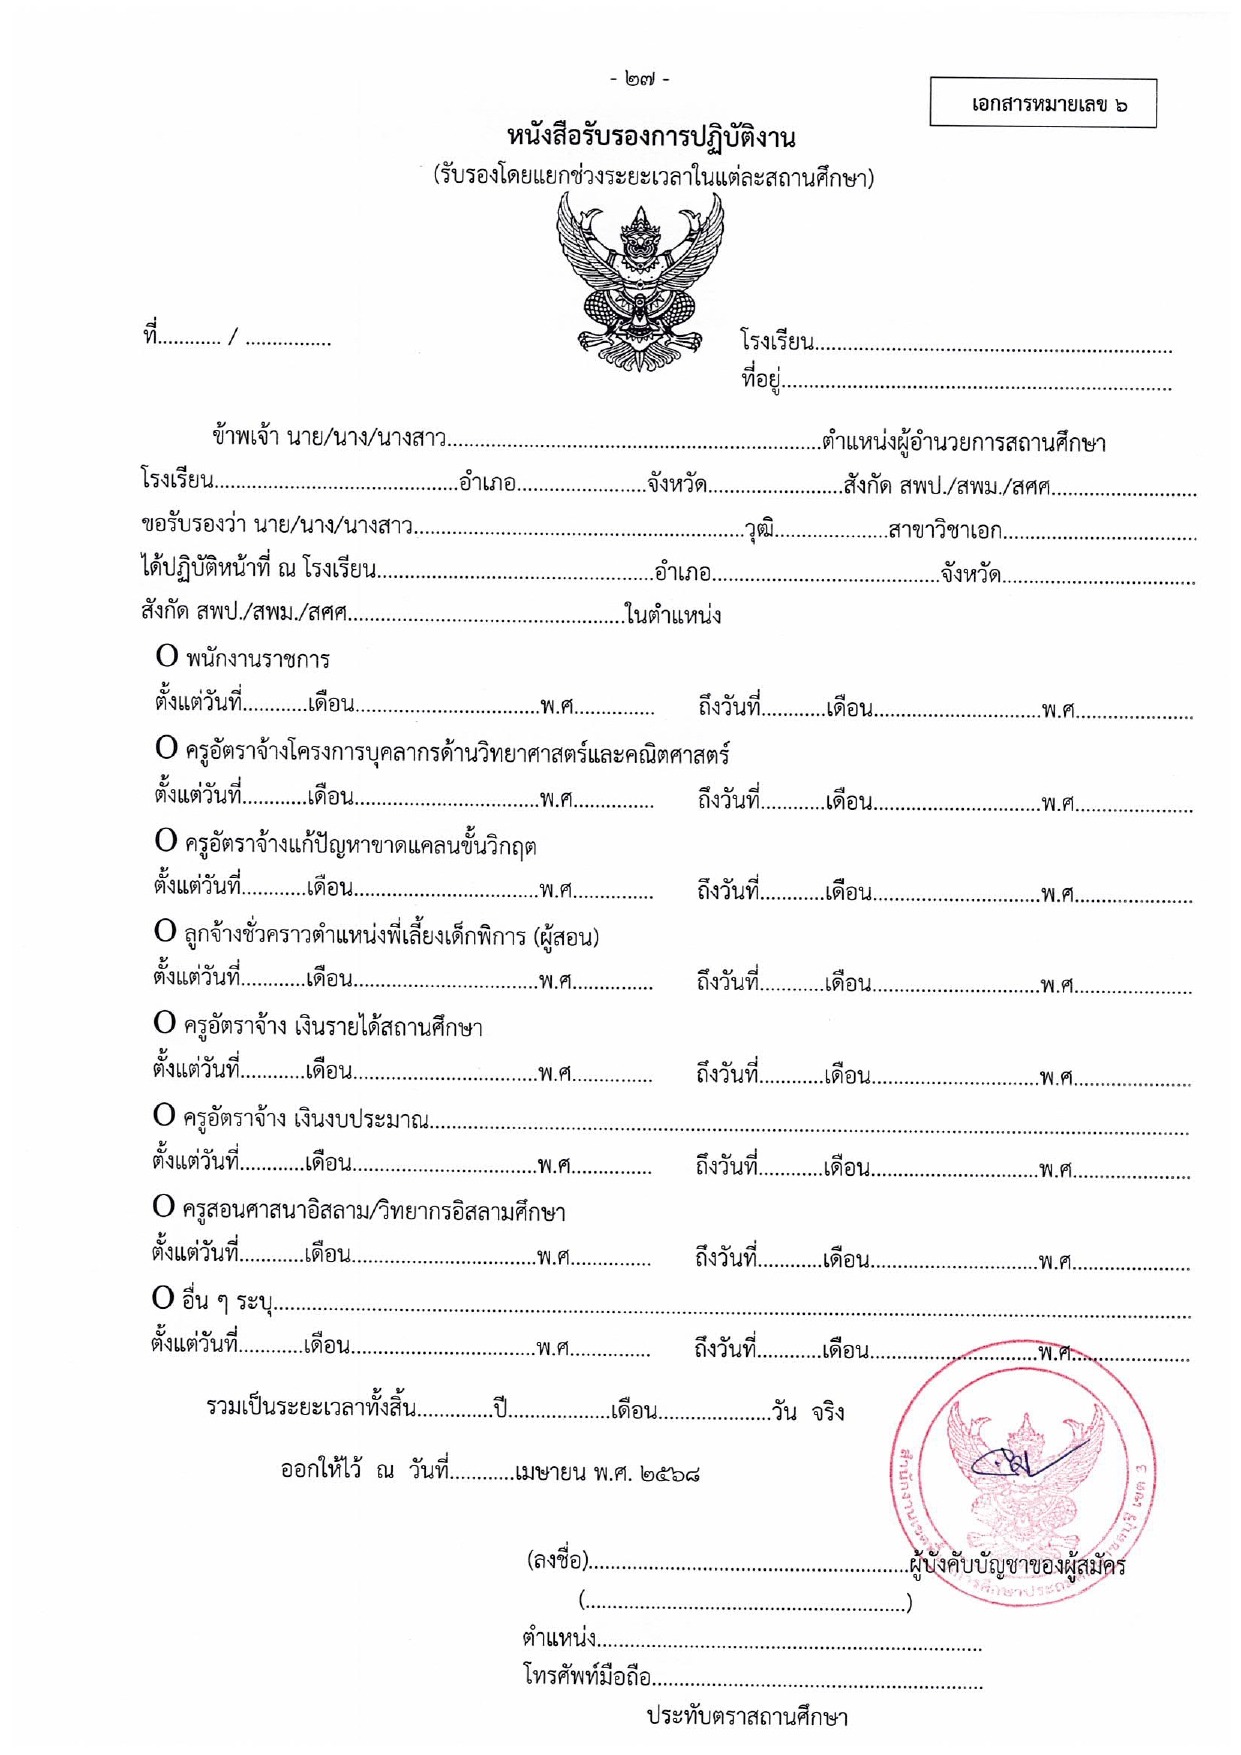 - ๒๗ -
เอกสารหมายเลข ๖
หนังสือรับรองการปฏิบัติงาน
(รับรองโดยแยกช่วงระยะเวลาในแต่ละสถานศึกษา)
ที่............ / ................
โรงเรียน....................................................................
ที่อยู่..........................................................................
ข้าพเจ้า นาย/นาง/นางสาว.......................................................................ตำแหน่งผู้อำนวยการสถานศึกษา
โรงเรียน..............................................อำเภอ........................จังหวัด.........................สังกัด สพป./สพม./สศศ...........................
ขอรับรองว่า นาย/นาง/นางสาว..............................................................วุฒิ.....................สาขาวิชาเอก.....................................
ได้ปฏิบัติหน้าที่ ณ โรงเรียน....................................................อำเภอ...........................................จังหวัด....................................
สังกัด สพป./สพม./สศศ....................................................ในตำแหน่ง
O พนักงานราชการ
ตั้งแต่วันที่............เดือน..................................พ.ศ............... ถึงวันที่............เดือน...............................พ.ศ......................
O ครูอัตราจ้างโครงการบุคลากรด้านวิทยาศาสตร์และคณิตศาสตร์
ตั้งแต่วันที่............เดือน..................................พ.ศ............... ถึงวันที่............เดือน...............................พ.ศ......................
O ครูอัตราจ้างแก้ปัญหาขาดแคลนขั้นวิกฤต
ตั้งแต่วันที่............เดือน..................................พ.ศ............... ถึงวันที่............เดือน...............................พ.ศ......................
O ลูกจ้างชั่วคราวตำแหน่งพี่เลี้ยงเด็กพิการ (ผู้สอน)
ตั้งแต่วันที่............เดือน..................................พ.ศ............... ถึงวันที่............เดือน...............................พ.ศ......................
O ครูอัตราจ้าง เงินรายได้สถานศึกษา
ตั้งแต่วันที่............เดือน..................................พ.ศ............... ถึงวันที่............เดือน...............................พ.ศ......................
O ครูอัตราจ้าง เงินงบประมาณ................................................................................................................
ตั้งแต่วันที่............เดือน..................................พ.ศ............... ถึงวันที่............เดือน...............................พ.ศ......................
O ครูสอนศาสนาอิสลาม/วิทยากรอิสลามศึกษา
ตั้งแต่วันที่............เดือน..................................พ.ศ............... ถึงวันที่............เดือน...............................พ.ศ......................
O อื่น ๆ ระบุ...............................................................................................................................................
ตั้งแต่วันที่............เดือน..................................พ.ศ............... ถึงวันที่............เดือน...............................พ.ศ......................
รวมเป็นระยะเวลาทั้งสิ้น..............ปี...................เดือน.....................วัน จริง
ออกให้ไว้ ณ วันที่............เมษายน พ.ศ. ๒๕๖๘
(ลงชื่อ)............................................................ผู้บังคับบัญชาของผู้สมัคร
(............................................................)
ตำแหน่ง........................................................................
โทรศัพท์มือถือ..............................................................
ประทับตราสถานศึกษา